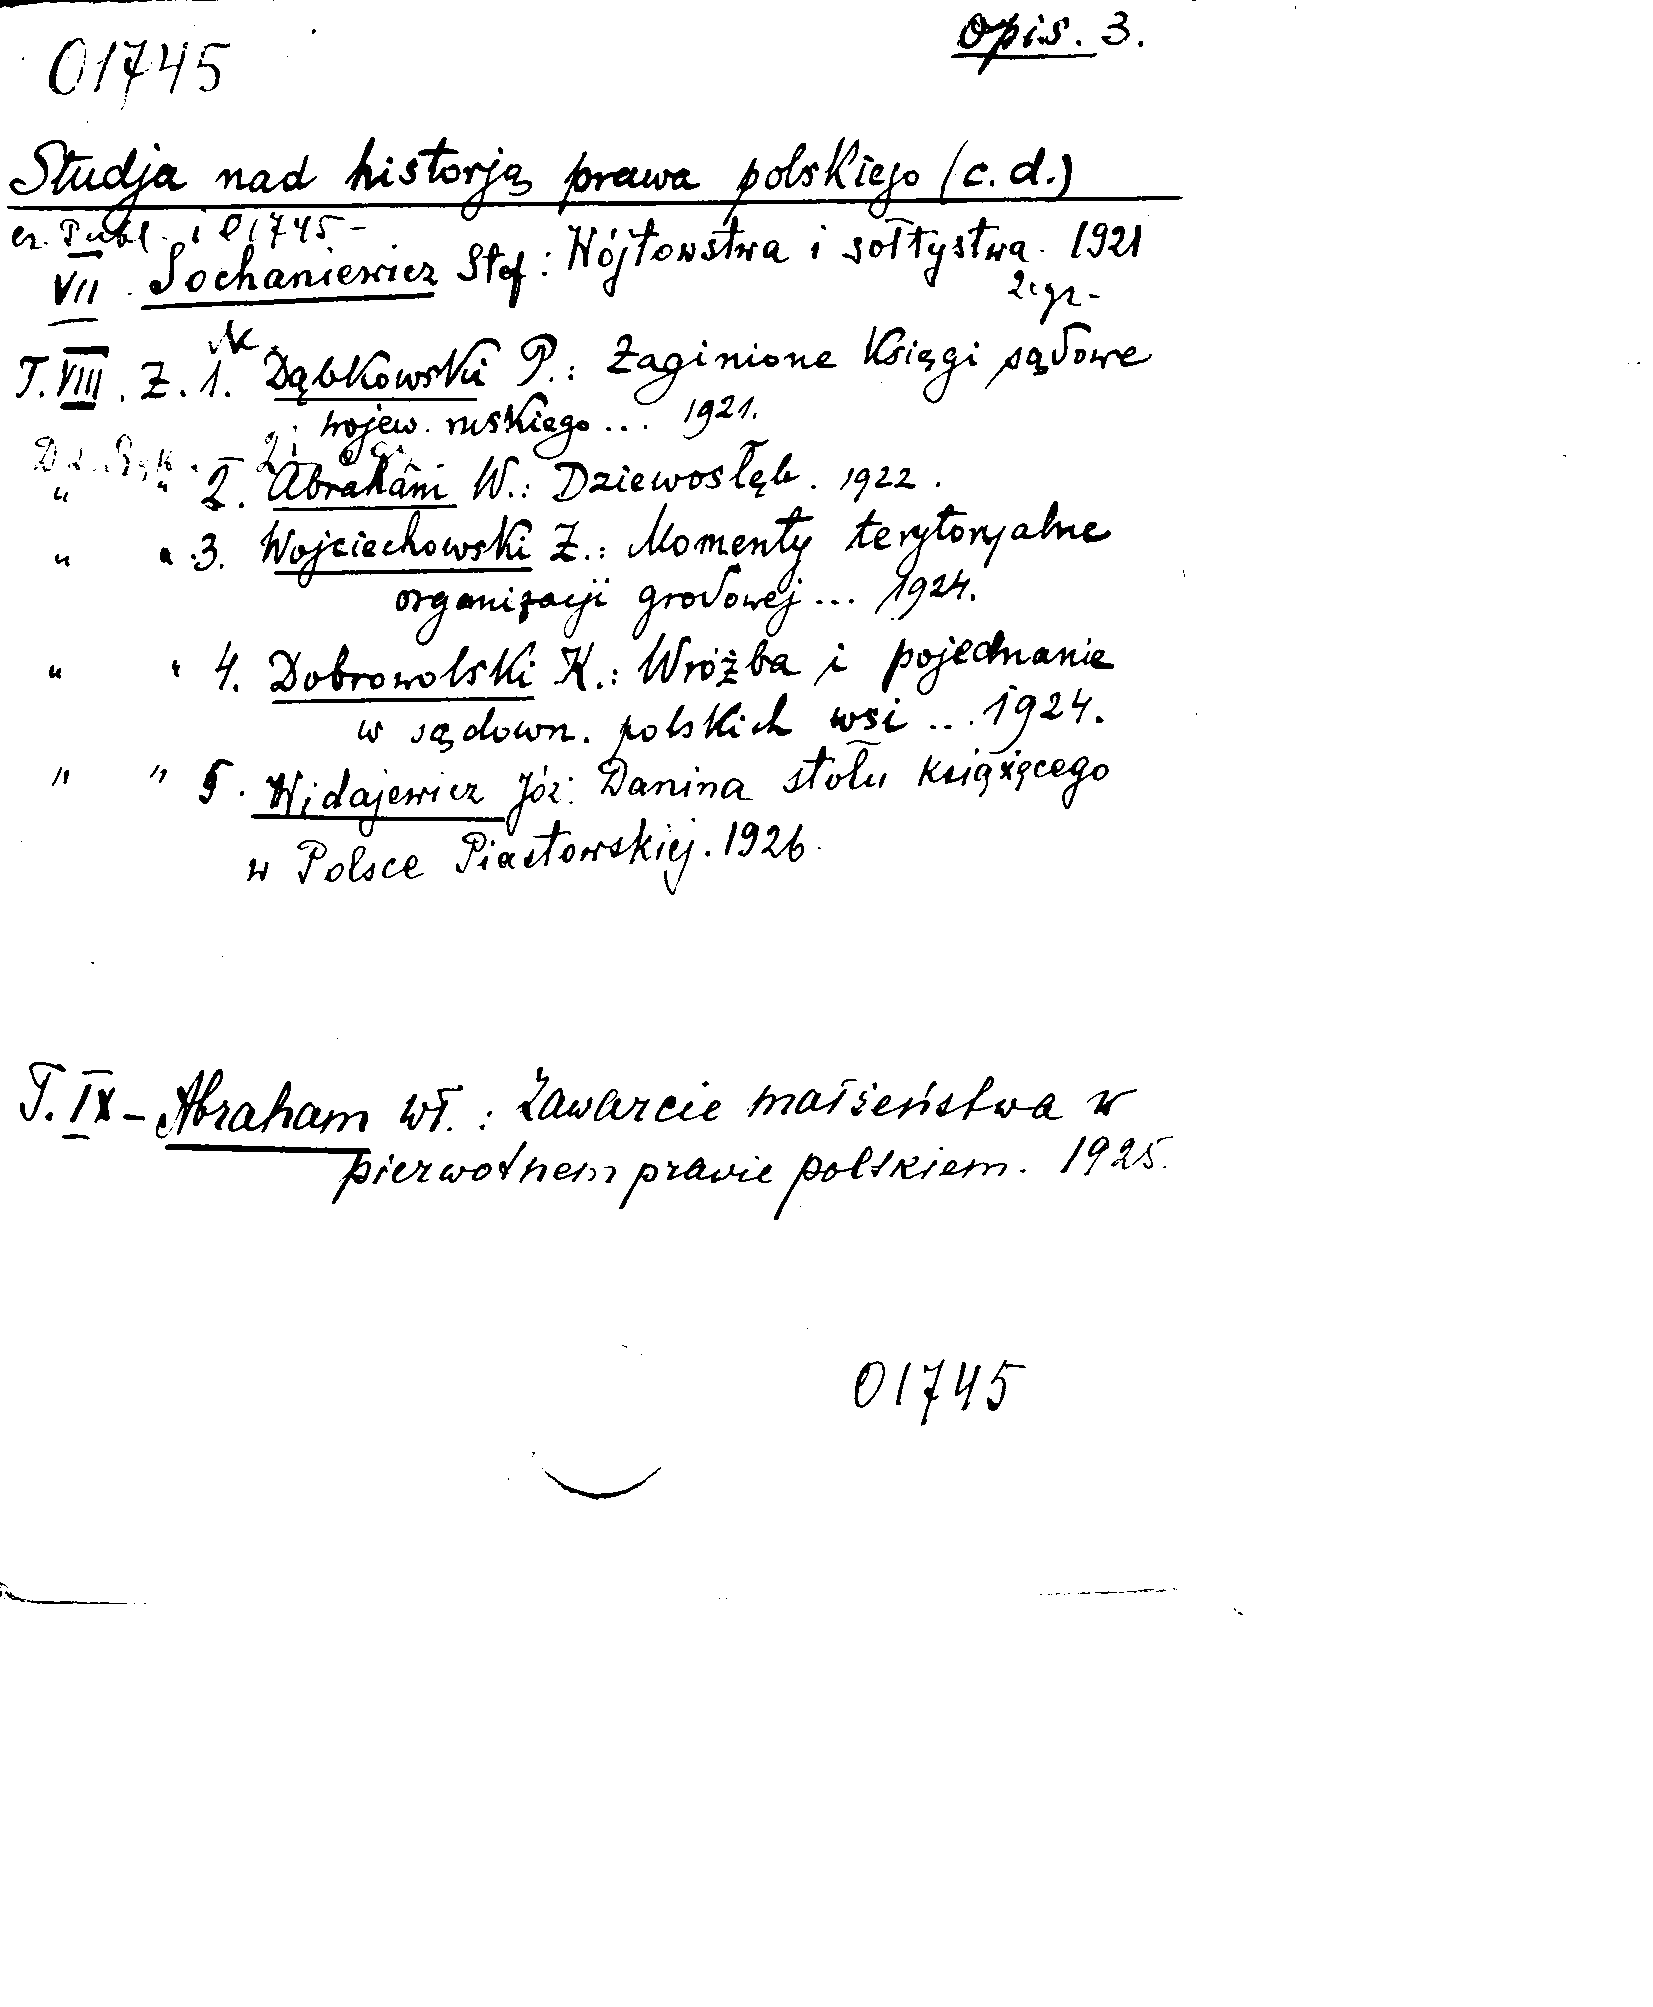 Opis. 3.
01745
Studja nad historją prawa polskiego (c.d.)
cz. Publ. i 01745 -
VII. Sochaniewicz Stef: Wójtowstwa i sołtystwa. 1921
2 egz -
T. VIII. Z. 1. Dąbkowski P.: Zaginione Księgi sądowe
wojew. ruskiego... 1921.
" " 2. Abraham W.: Dziewosłęb. 1922.
" " 3. Wojciechowski Z.: Momenty terytorjalne
organizacji grodowej... 1924.
" " 4. Dobrowolski K.: Wróżba i pojednanie
w sądown. polskich wsi ... 1924.
" " 5. Widajewicz Józ: Danina stołu książęcego
w Polsce Piastowskiej. 1926.
T. IX - Abraham Wł.: Zawarcie małżeństwa w
pierwotnem prawie polskiem. 1925.
01745